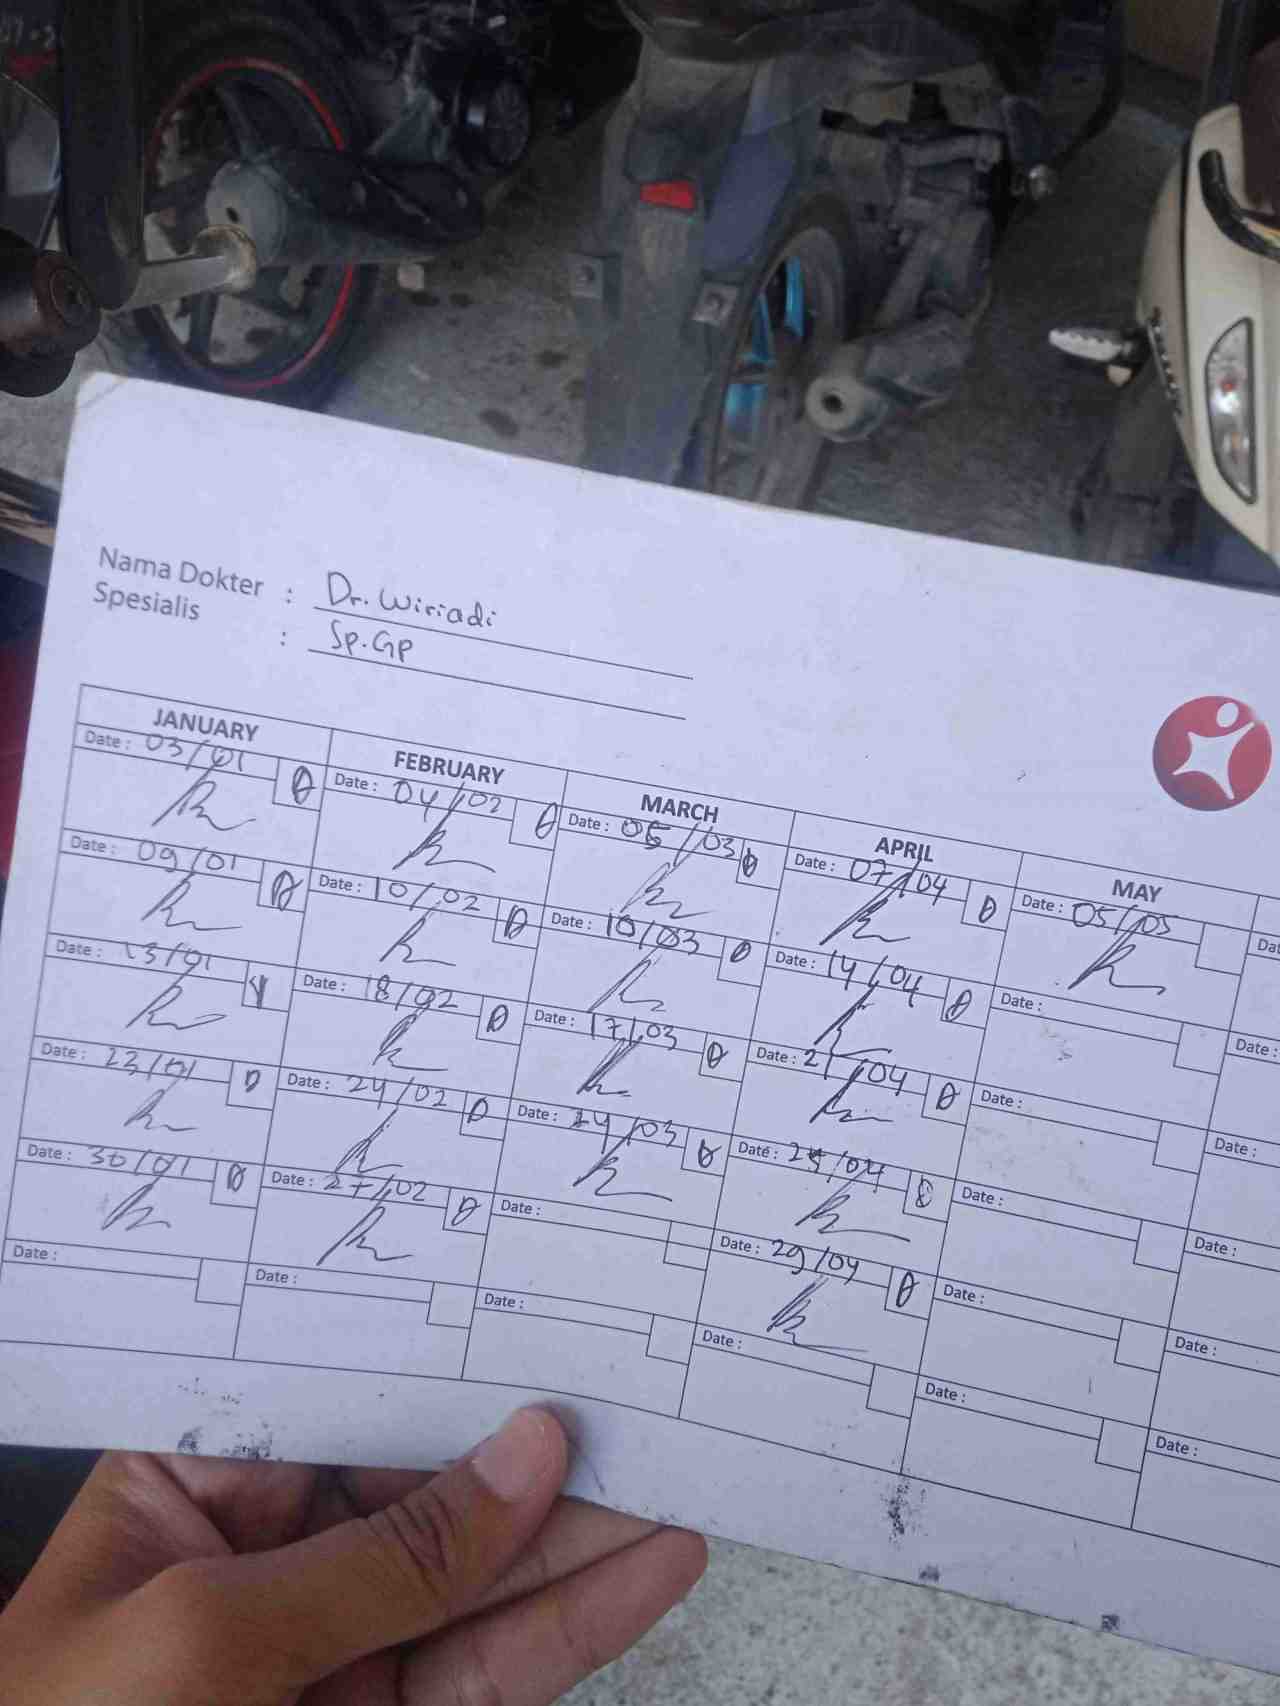 Nama Dokter : Dr. Wiriadi
Spesialis : Sp.Gp
JANUARY FEBRUARY MARCH APRIL MAY
Date : 03/01 Date : 04/02 Date : 03 Date : 07/04 Date : 05/05 Dat
Date : 09/01 Date : 10/02 Date : 10/03 Date : 14/04 Date : Date :
Date : 13/01 Date : 18/02 Date : 17/03 Date : 21/04 Date : Date :
Date : 23/01 Date : 24/02 Date : 24/03 Date : /04 Date : Date :
Date : 30/01 Date : 27/02 Date : Date : 29/04 Date : Date :
Date : Date : Date : Date : Date : Date :